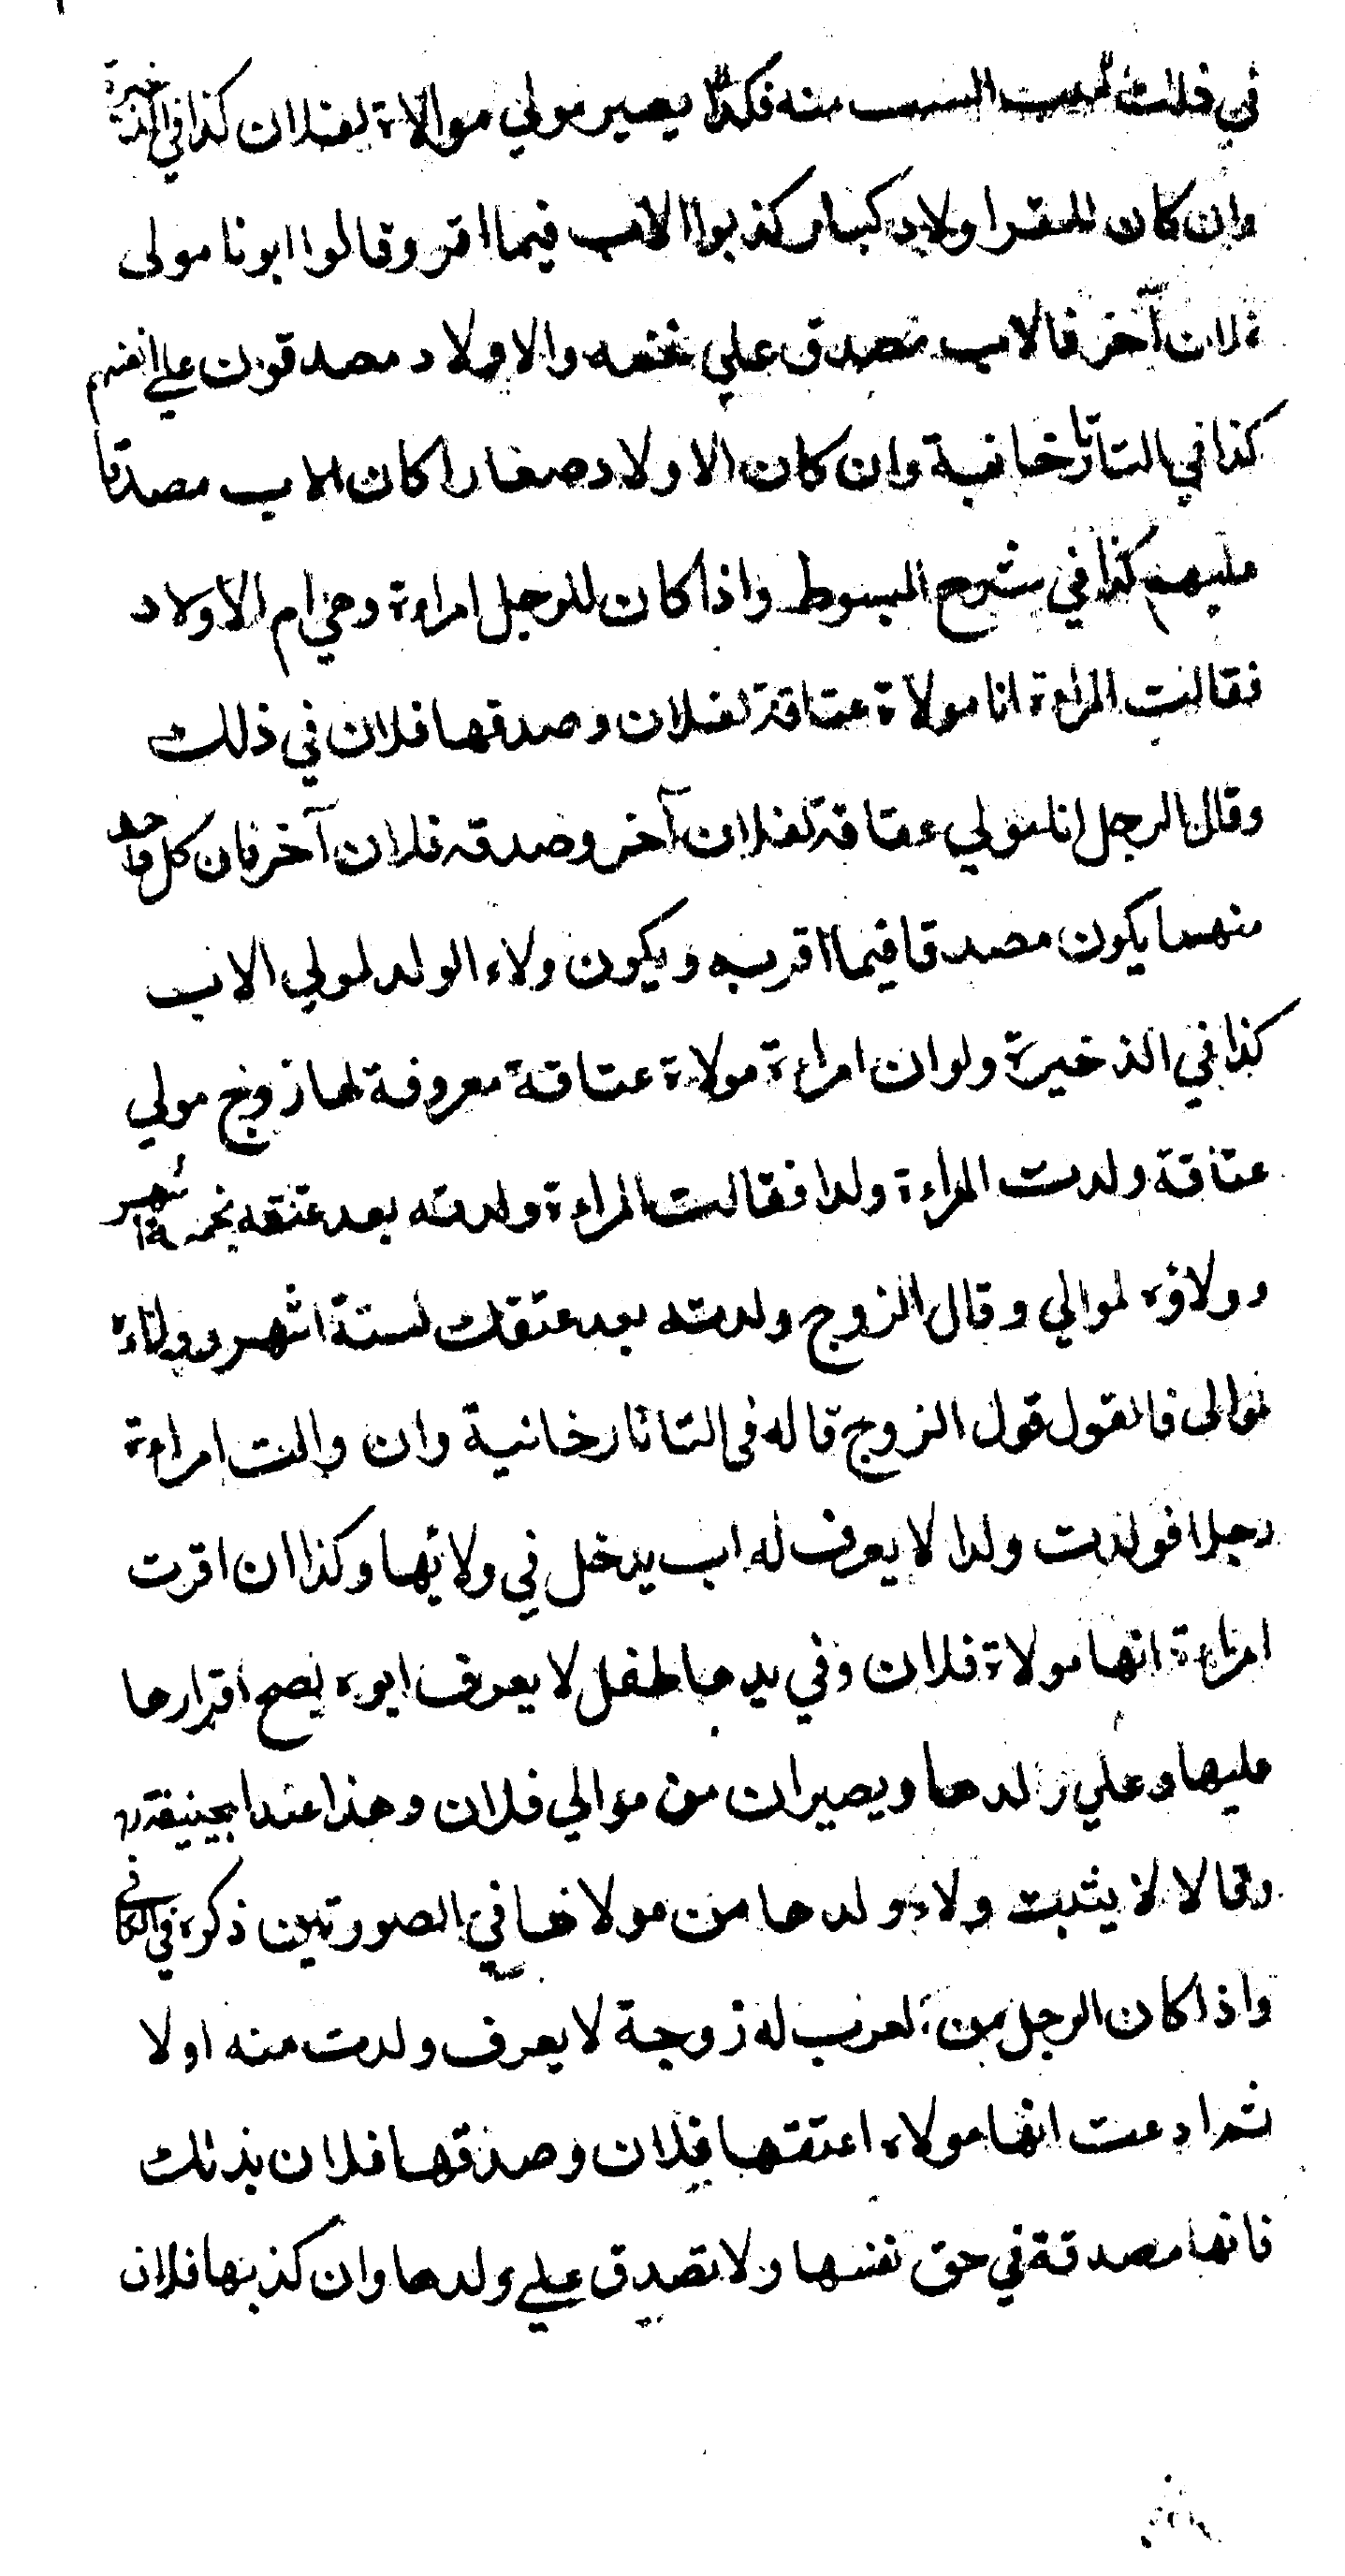 في ذلك يثبت النسب منه فكذا يصير مولي موالاة لفلان كذا في الذخيرة
وان كان للمقر اولاد كبار كذبوا الاب فيما اقر وقالوا ابونا مولى
فلان آخر فالاب مصدق علي نفسه والاولاد مصدقون علي انفسهم
كذا في التاتارخانية وان كان الاولاد صغارا كان الاب مصدقا
عليهم كذا في شرح المبسوط واذا كان للرجل امراءة وهي ام الاولاد
فقالت المراءة انا مولاة عتاقة لفلان وصدقها فلان في ذلك
وقال الرجل انا مولي عتاقة لفلان آخر وصدقه فلان آخر فان كل واحد
منهما يكون مصدقا فيما اقر به ويكون ولاء الولد لمولي الاب
كذا في الذخيرة ولو ان امراءة مولاة عتاقة معروفة لها زوج مولي
عتاقة ولدت المراءة ولدا فقالت المراءة ولدته بعد عتقه بخمسة اشهر
وولاؤه لموالي وقال الزوج ولدته بعد عتقك لستة اشهر وولاءه
لموالى فالقول قول الزوج قاله في التاتارخانية وان والت امراءة
رجلا فولدت ولدا لا يعرف له اب يدخل في ولائها وكذا ان اقرت
امراءة انها مولاة فلان وفي يدها طفل لا يعرف ابوه يصح اقرارها
عليها وعلي ولدها ويصيران من موالي فلان وهذا عند ابيحنيفة رح
وقالا لا يثبت ولاء ولدها من مولاها في الصورتين ذكره في الكافي
واذا كان الرجل من العرب له زوجة لا يعرف ولدت منه اولا
ثم ادعت انها مولاه اعتقها فلان وصدقها فلان بذلك
فانها مصدقة في حق نفسها ولا تصدق علي ولدها وان كذبها فلان